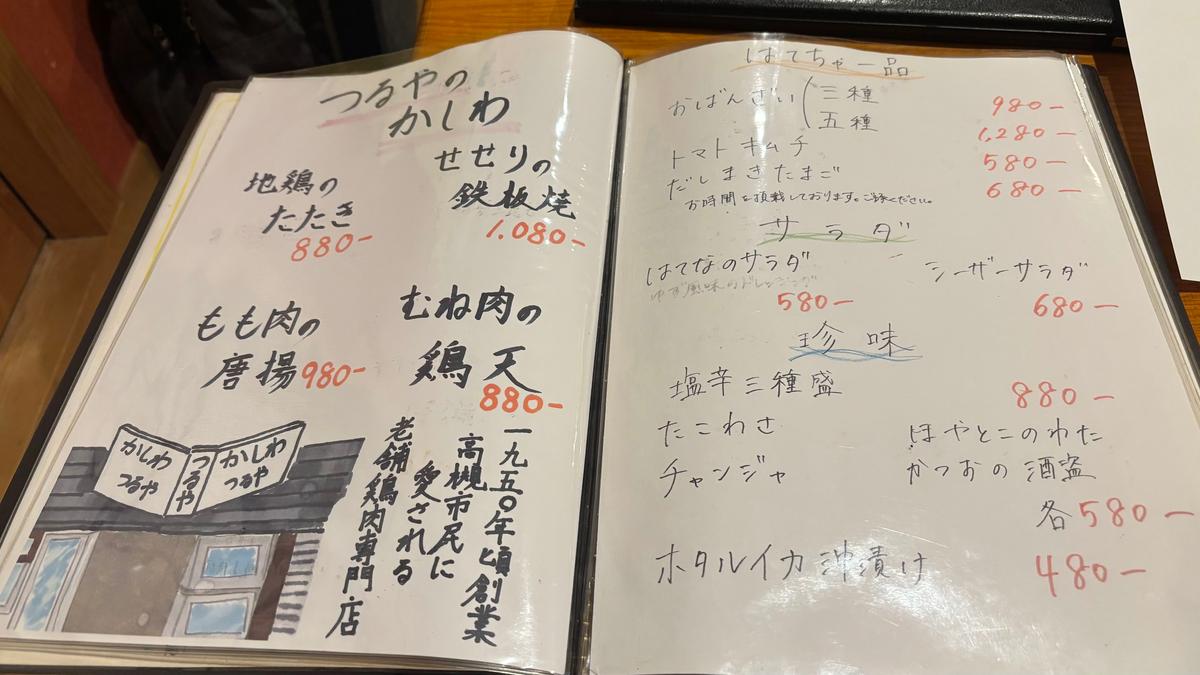 つるやの
かしわ
地鶏の
たたき
880-
せせりの
鉄板焼
1.080-
もも肉の
唐揚980-
むね肉の
鶏天
880-
かしわ
つるや
つるや
かしわ
つるや
一九五〇年頃創業
高槻市民に
愛される
老舗鶏肉専門店
はてちゃ一品
おばんざい(三種 980-
五種 1,280-
トマトキムチ 580-
だしまきたまご 680-
お時間を頂戴しております。ご了承ください。
サラダ
はてなのサラダ
ゆず風味のドレッシング
580-
シーザーサラダ
680-
珍味
塩辛三種盛 880-
たこわさ ほやとこのわた
チャンジャ かつおの酒盗
各580-
ホタルイカ沖漬け 480-